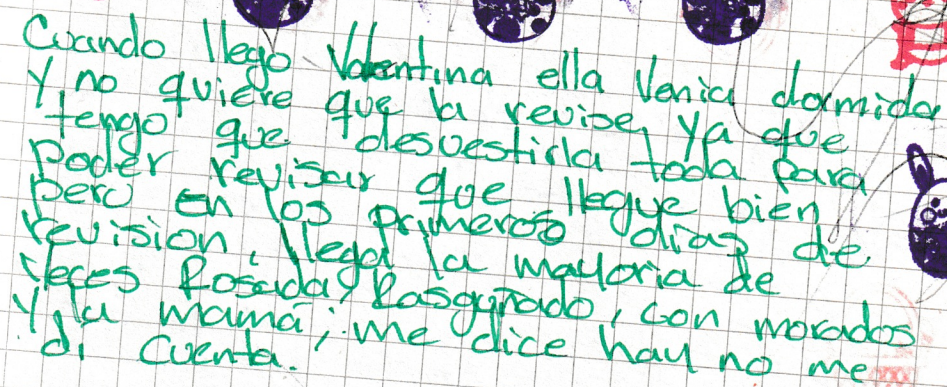 Cuando llego Valentina ella Venia dormida
Y no quiere que la revise, ya que
tengo que desvestirla toda para
poder revisar que llegue bien
pero en los primeros dias de
revision, llega la mayoria de
veces Rosada, Rasguñado, con morados
Y la mamá; me dice hay no me
di cuenta.